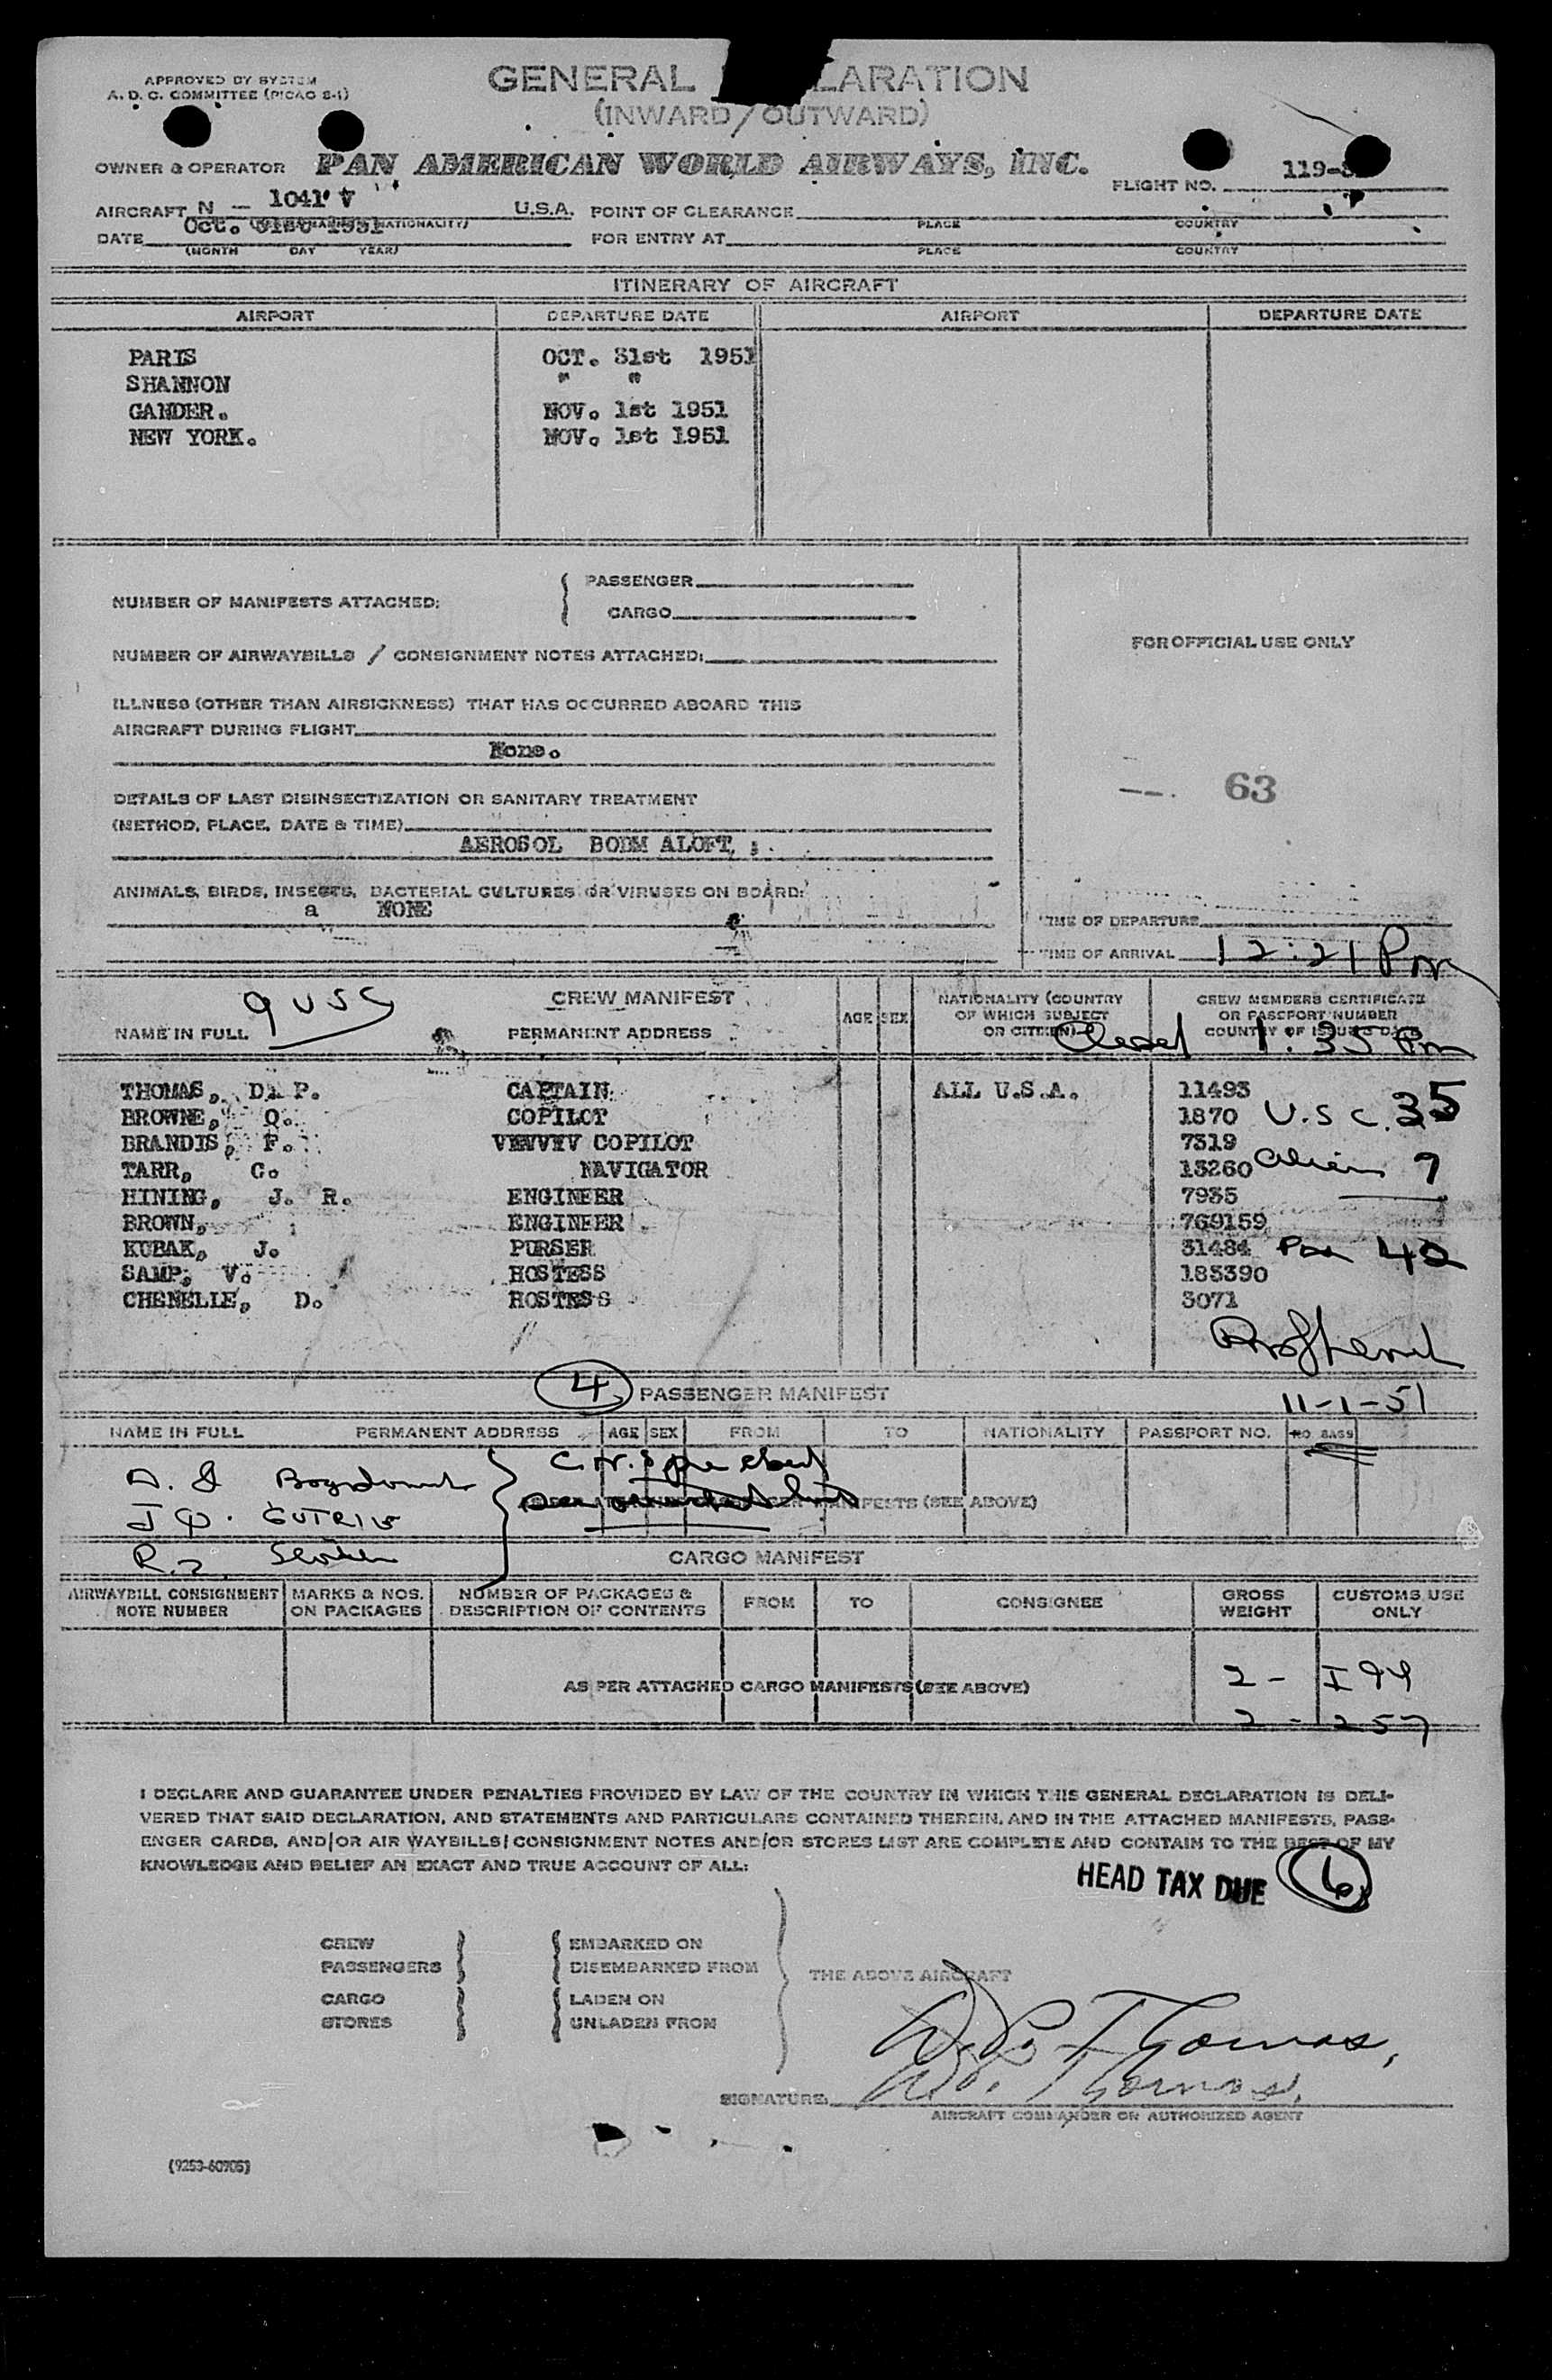 APPROVED BY SYSTEM
A. D. C. COMMITTEE (PICAO 8-1)
GENERAL LARATION
(INWARD/OUTWARD)
OWNER & OPERATOR PAN AMERICAN WORLD AIRWAYS, INC.
FLIGHT NO. 119-
AIRCRAFT N - 1041 V U.S.A. POINT OF CLEARANCE
NATIONALITY) PLACE COUNTRY
DATE Oct. 31st 1951 FOR ENTRY AT
(MONTH DAY YEAR) PLACE COUNTRY
ITINERARY OF AIRCRAFT
AIRPORT DEPARTURE DATE AIRPORT DEPARTURE DATE
PARIS OCT. 31st 1951
SHANNON " "
GANDER. NOV. 1st 1951
NEW YORK. NOV. 1st 1951
NUMBER OF MANIFESTS ATTACHED: PASSENGER
CARGO
FOR OFFICIAL USE ONLY
NUMBER OF AIRWAYBILLS / CONSIGNMENT NOTES ATTACHED:
ILLNESS (OTHER THAN AIRSICKNESS) THAT HAS OCCURRED ABOARD THIS
AIRCRAFT DURING FLIGHT
None.
63
DETAILS OF LAST DISINSECTIZATION OR SANITARY TREATMENT
(METHOD, PLACE, DATE & TIME)
AEROSOL BOBM ALOFT
ANIMALS, BIRDS, INSECTS, BACTERIAL CULTURES OR VIRUSES ON BOARD:
a NONE
TIME OF DEPARTURE
TIME OF ARRIVAL 12:21 Pm
9 USC
CREW MANIFEST
NAME IN FULL PERMANENT ADDRESS AGE SEX NATIONALITY (COUNTRY OF WHICH SUBJECT OR CITIZEN) CREW MEMBERS CERTIFICATE OR PASSPORT NUMBER COUNTRY OF ISSUE
1:35 Pm
THOMAS, D. P. CAPTAIN ALL U.S.A. 11493
BROWNE, O. COPILOT 1870 U.S C. 35
BRANDIS, F. COPILOT 7319
TARR, C. NAVIGATOR 13260 Alien 7
HINING, J. R. ENGINEER 7935
BROWN, ENGINEER 769159
KUBAK, J. PURSER 31484 Pax 42
SAMP, V. HOSTESS 183390
CHENELLE, D. HOSTESS 3071
4 PASSENGER MANIFEST
11-1-51
NAME IN FULL PERMANENT ADDRESS AGE SEX FROM TO NATIONALITY PASSPORT NO. NO. BAGS
MANIFESTS (SEE ABOVE)
CARGO MANIFEST
AIRWAYBILL CONSIGNMENT NOTE NUMBER MARKS & NOS. ON PACKAGES NUMBER OF PACKAGES & DESCRIPTION OF CONTENTS FROM TO CONSIGNEE GROSS WEIGHT CUSTOMS USE ONLY
2 - I 94
AS PER ATTACHED CARGO MANIFESTS (SEE ABOVE)
2 - 257
I DECLARE AND GUARANTEE UNDER PENALTIES PROVIDED BY LAW OF THE COUNTRY IN WHICH THIS GENERAL DECLARATION IS DELI-
VERED THAT SAID DECLARATION, AND STATEMENTS AND PARTICULARS CONTAINED THEREIN, AND IN THE ATTACHED MANIFESTS, PASS-
ENGER CARDS, AND/OR AIR WAYBILLS/CONSIGNMENT NOTES AND/OR STORES LIST ARE COMPLETE AND CONTAIN TO THE BEST OF MY
KNOWLEDGE AND BELIEF AN EXACT AND TRUE ACCOUNT OF ALL:
HEAD TAX DUE 6
CREW EMBARKED ON
PASSENGERS DISEMBARKED FROM THE ABOVE AIRCRAFT
CARGO LADEN ON
STORES UNLADEN FROM
D. P. Thomas,
SIGNATURE: D. P. Thomas.
AIRCRAFT COMMANDER OR AUTHORIZED AGENT
(9253-60705)